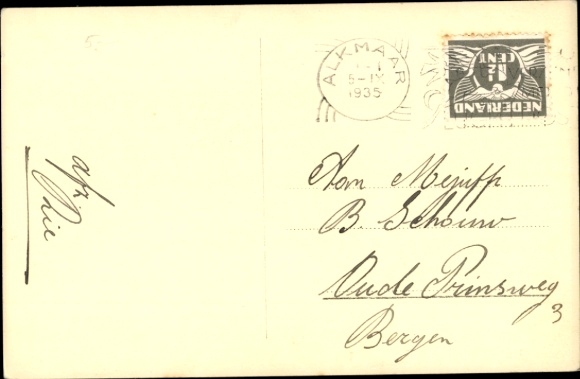 afz.
Rie
ALKMAAR
5-IX
1935
1½
CENT
NEDERLAND
Aan Mejuffr
B. Schouw
Oude Prinsweg
3
Bergen